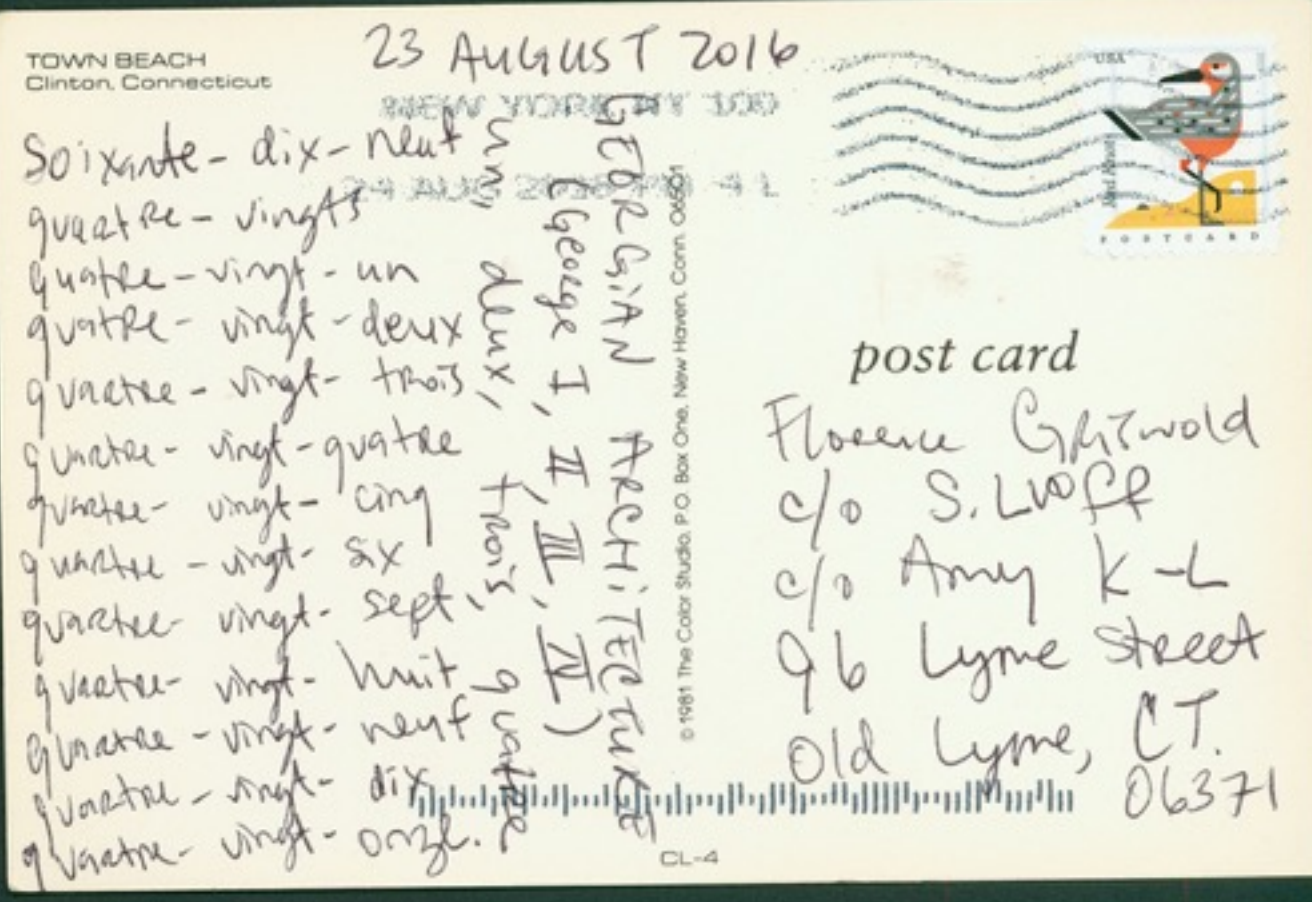 TOWN BEACH
Clinton, Connecticut
23 AUGUST 2016
NEW YORK NY 100
Soixante-dix-neuf
quartre-vingts
quatre-vingt-un
quatre-vingt-deux
quartre-vingt-trois
quartre-vingt-quatre
quartre-vingt-cinq
quartre-vingt-six
quartre-vingt-sept
quartre-vingt-huit
quartre-vingt-neuf
quartre-vingt-dix
quartre-vingt-onze.
un, deux, trois, quatre
(George I, II, III, IV)
GEORGIAN ARCHITECTURE
© 1981 The Color Studio, P.O. Box One, New Haven, Conn. 06501
CL-4
USA
POSTCARD
post card
Florence Griswold
c/o S. LVOFF
c/o Amy K-L
96 Lyme Street
Old Lyme, CT.
06371